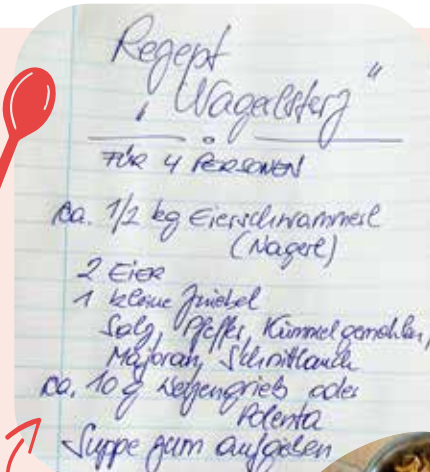 Rezept
„Nagerlsterz"
FÜR 4 PERSONEN
ca. 1/2 kg Eierschwammerl
(Nagerl)
2 EIER
1 kleine Zwiebel
Salz, Pfeffer, Kümmel gemahlen,
Majoran, Schnittlauch
ca. 10 g Weizengrieß oder
Polenta
Suppe zum aufgießen